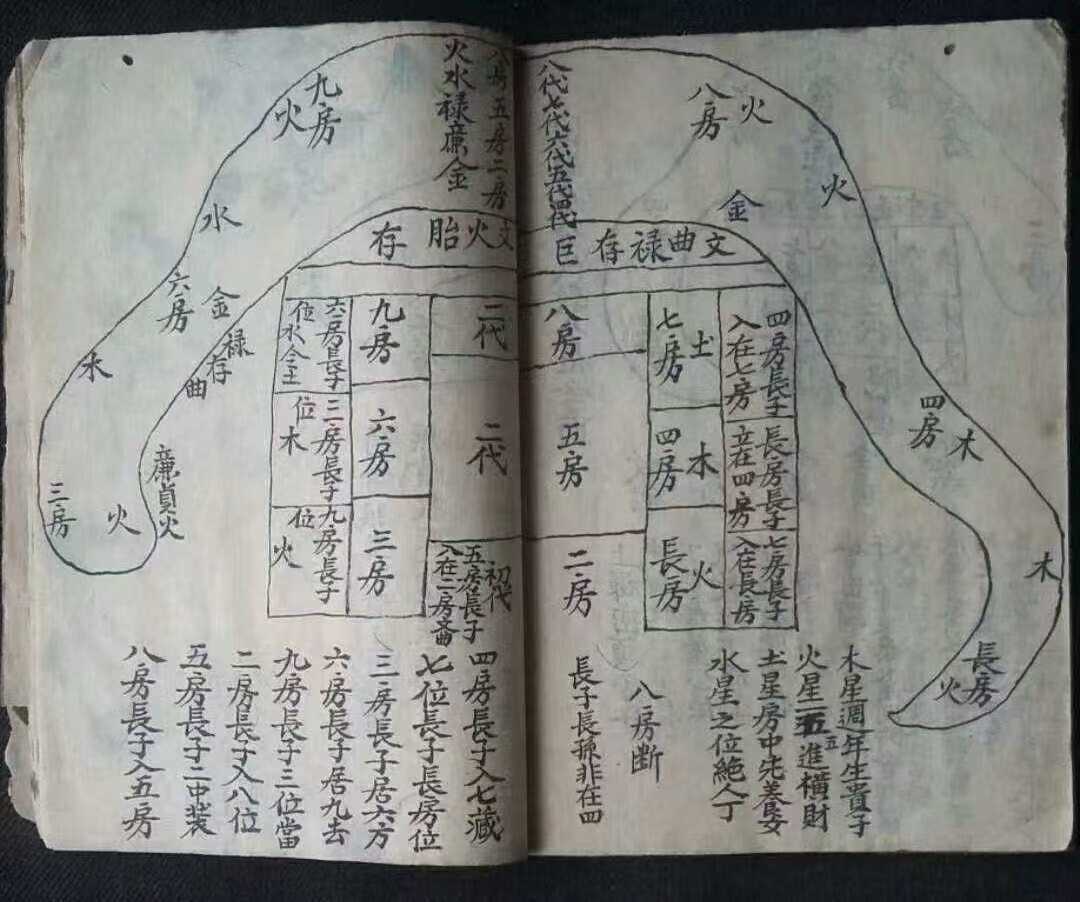 木星週年生貴子
火星二五五進橫財
土星房中先養女
水星之位絕人丁
八房斷
長子長孫非在四
長房
火
木
木
四房
火
火
八房
金
八代七代六代五代四代
文曲禄存
巨
四房長子
入在七房
長房長子
立在四房
七房長子
入在長房
土
七房
木
四房
火
長房
八房
五房
二房
八房五房二房
火水禄廉金
文火胎存
二代
二代
初代
五房長子
入在二房
九房
六房
三房
六房長子
位水金土
三房長子
位木
九房長子
位火
九房
火
水
六房
金
禄存
曲
木
廉貞火
三房
火
四房長子入七藏
七位長子長房位
三房長子居六方
六房長子居九去
九房長子三位當
二房長子入八位
五房長子二中裝
八房長子入五房